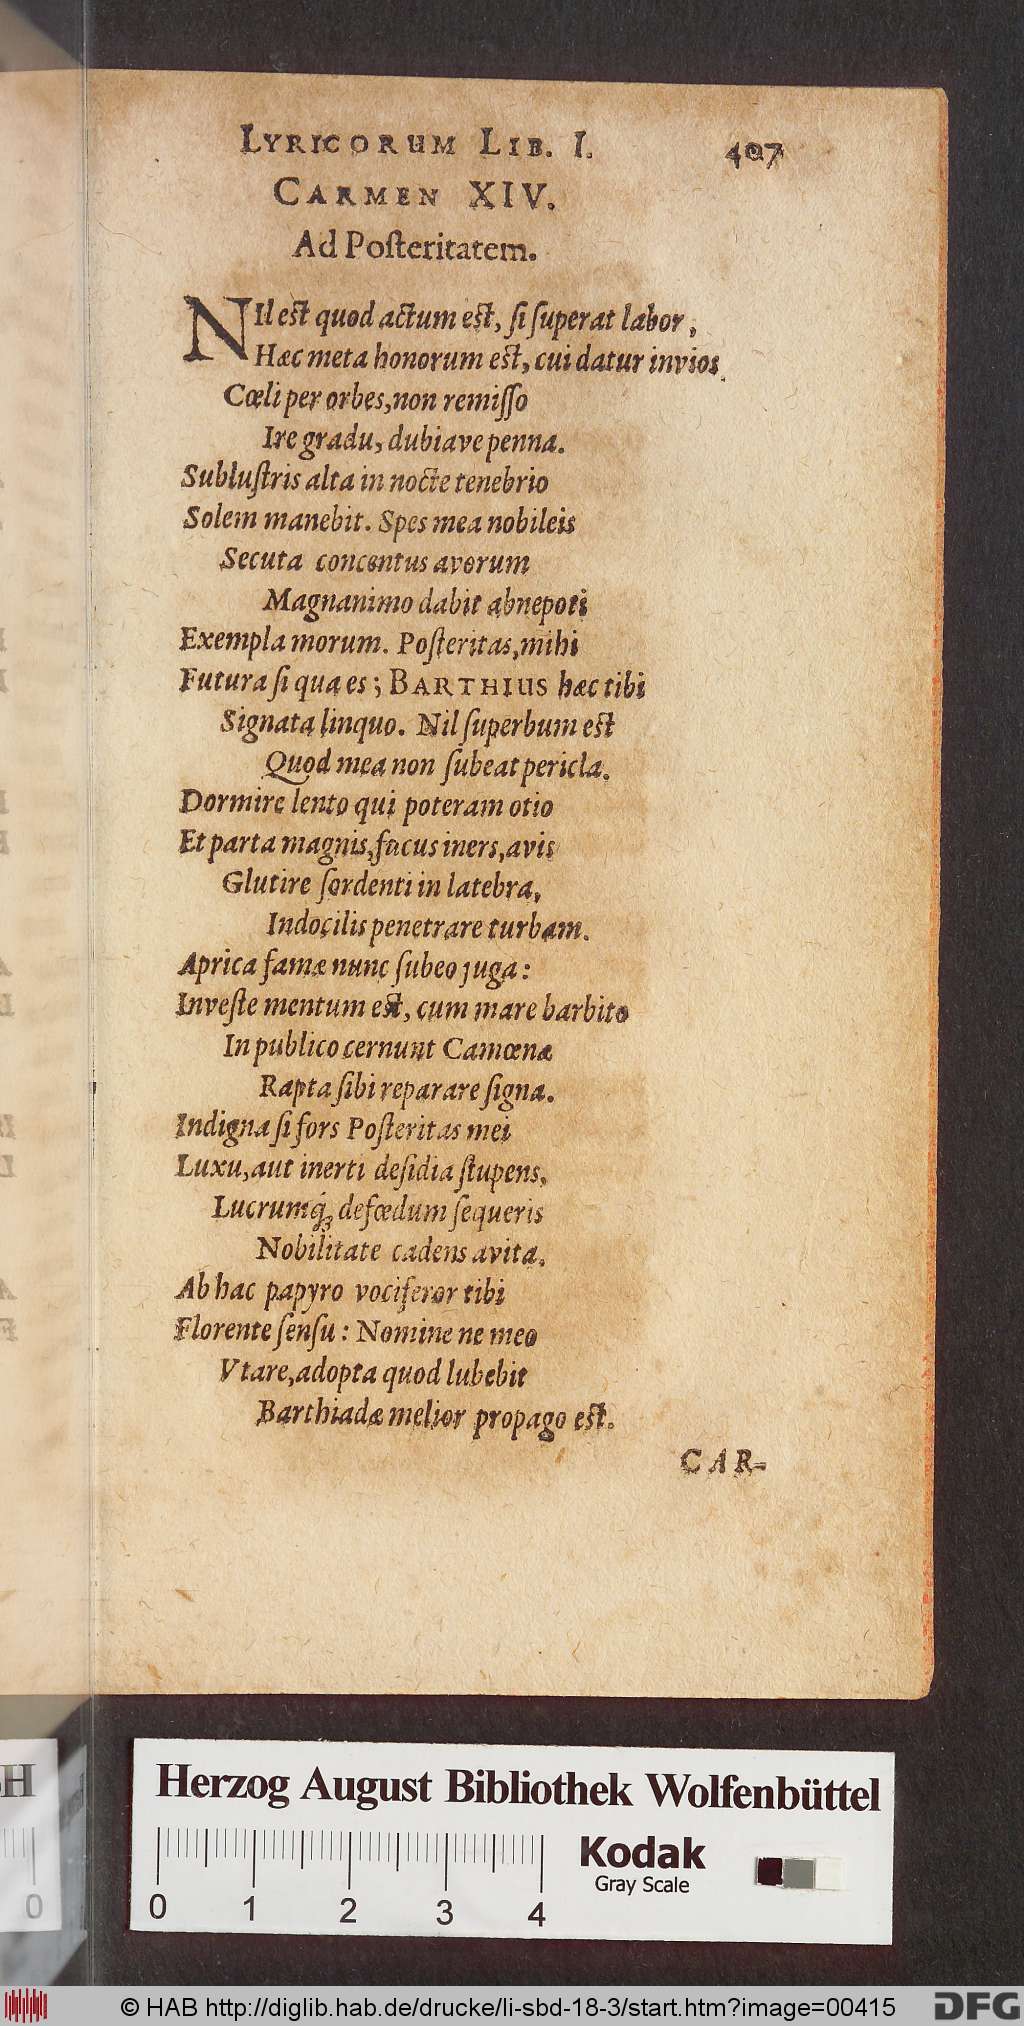 LYRICORUM LIB. I. 407
CARMEN XIV.
Ad Poſteritatem.
NIl est quod actum est, ſi ſuperat labor,
Hæc meta honorum est, cui datur invios
Cœli per orbes, non remiſſo
Ire gradu, dubiave penna.
Subluſtris alta in nocte tenebrio
Solem manebit. Spes mea nobileis
Secuta concentus avorum
Magnanimo dabit abnepoti
Exempla morum. Poſteritas, mihi
Futura ſi qua es; BARTHIUS hæc tibi
Signata linquo. Nil ſuperbum est
Quod mea non ſubeat pericla.
Dormire lento qui poteram otio
Et parta magnis, fucus iners, avis
Glutire ſordenti in latebra,
Indocilis penetrare turbam.
Aprica famæ nunc ſubeo juga:
Inveſte mentum est, cum mare barbito
In publico cernunt Camœnæ
Rapta ſibi reparare ſigna.
Indigna ſi fors Poſteritas mei
Luxu, aut inerti deſidia ſtupens,
Lucrumq́; defœdum ſequeris
Nobilitate cadens avita.
Ab hac papyro vociferor tibi
Florente ſenſu: Nomine ne meo
Vtare, adopta quod lubebit
Barthiadæ melior propago est.
CAR-
Herzog August Bibliothek Wolfenbüttel
Kodak
Gray Scale
0 1 2 3 4
H
0
© HAB http://diglib.hab.de/drucke/li-sbd-18-3/start.htm?image=00415
DFG